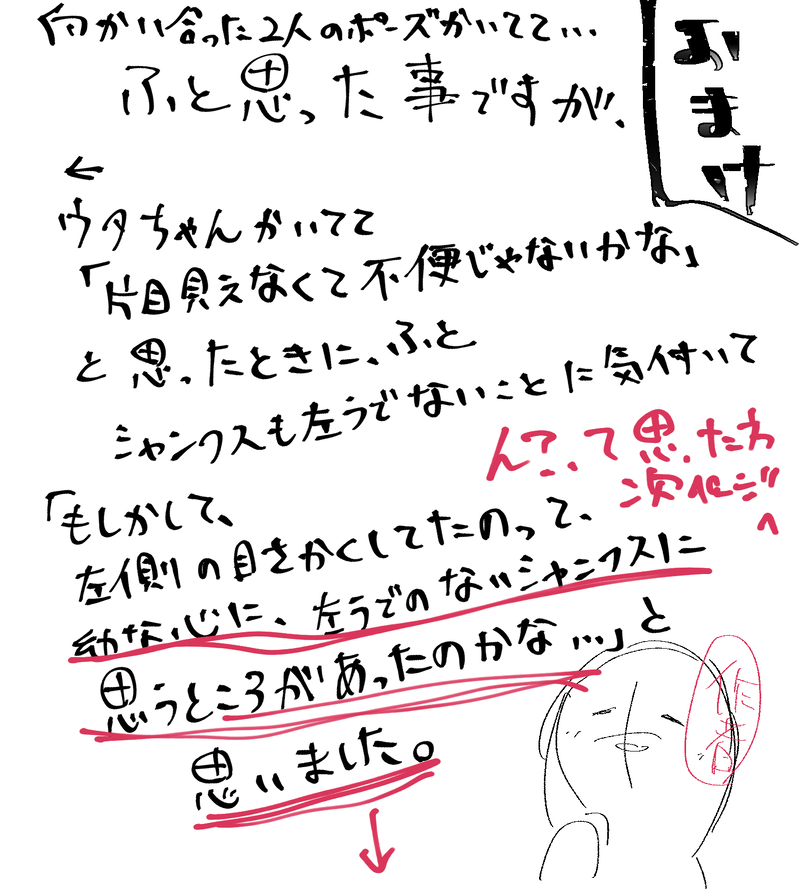 おまけ
向かい合った2人のポーズかいてて…
ふと思った事ですが、
←
ウタちゃんかいてて
「片目見えなくて不便じゃないかな」
と思ったときに、ふと
シャンクスも左うでないことに気付いて
ん?って思ったわ
次化ジ
へ
「もしかして、
左側の目をかくしてたのって、
幼な心に、左うでのないシャンクスに
思うところがあったのかな…」と
思いました。
↓